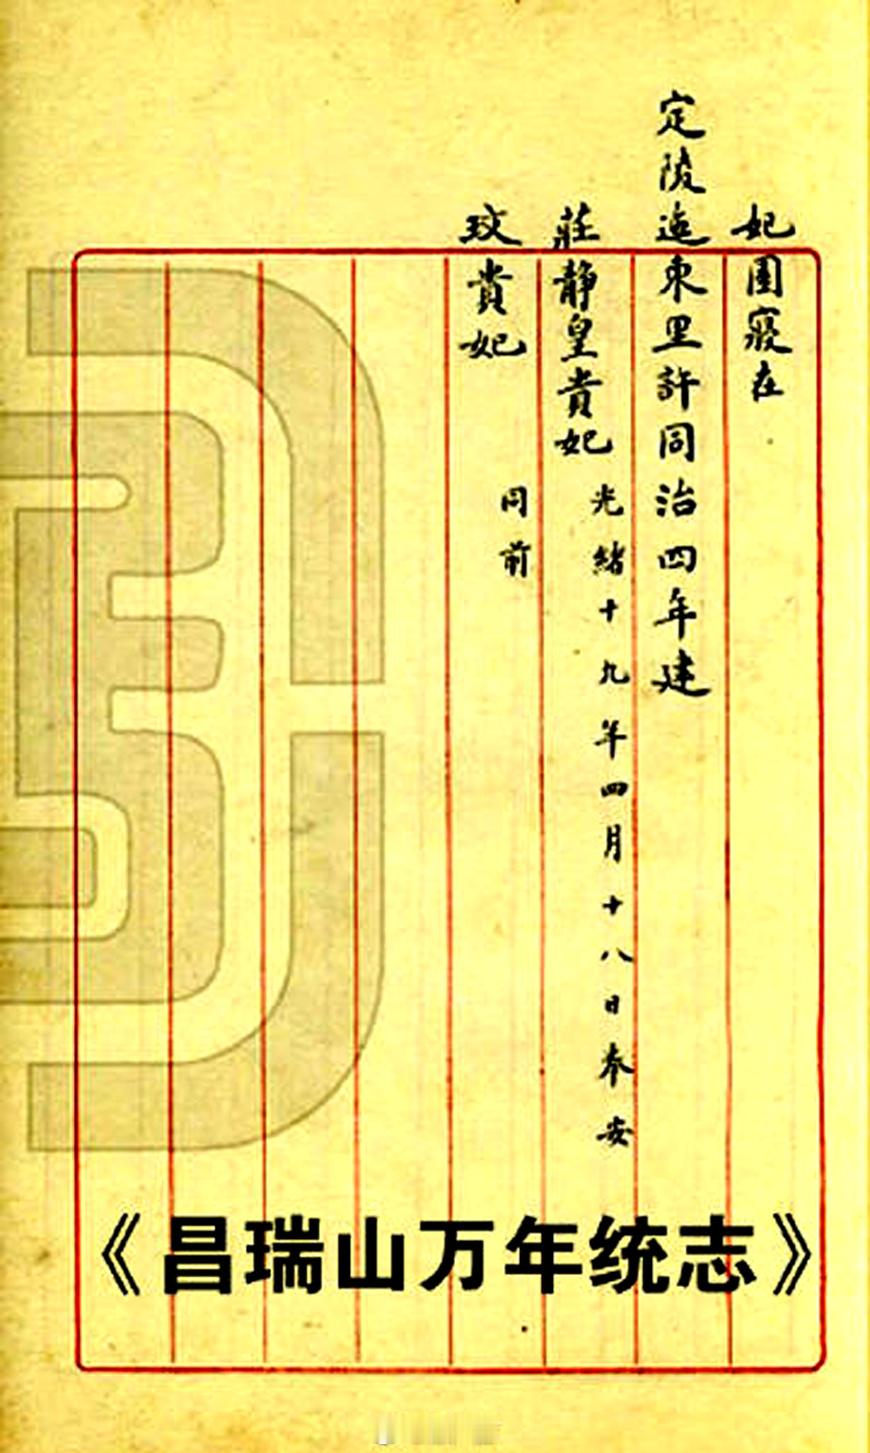 妃園寢在
定陵迤東里許同治四年建
莊靜皇貴妃 光緒十九年四月十八日奉安
玟貴妃 同前
《昌瑞山万年统志》